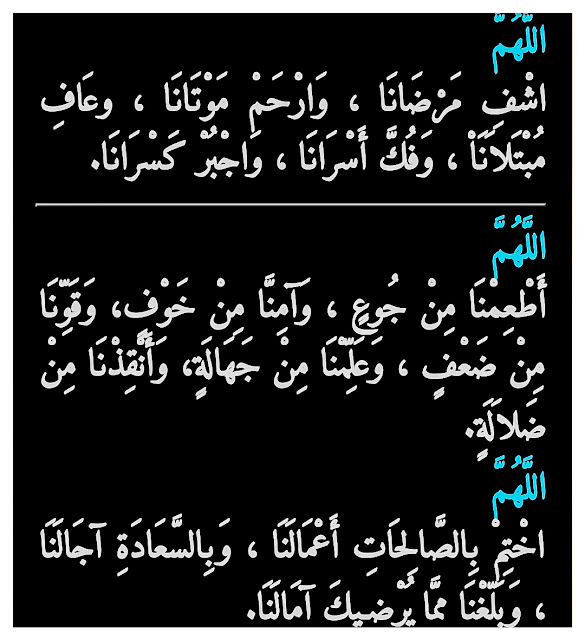 اللَّهُمَّ
اشْفِ مَرْضَانَا ، وَارْحَمْ مَوْتَانَا ، وعَافِ
مُبْتَلَانَاْ ، وَفُكَّ أَسْرَانَا ، وَاجْبُرْ كَسْرَانَا.
اللَّهُمَّ
أَطْعِمْنَا مِنْ جُوعٍ ، وَآمِنَّا مِنْ خَوْفٍ، وَقَوِّنَا
مِنْ ضَعْفٍ ، وَعَلِّمْنَا مِنْ جَهَالَةٍ، وَأَنْقِذْنَا مِنْ
ضَلاَلَةٍ.
اللَّهُمَّ
اخْتِمْ بِالصَّالِحَاتِ أَعْمَالَنَا ، وَبِالسَّعَادَةِ آجَالَنَا
، وَبَلِّغْنَا مِمَّا يُرْضيكَ آمَالَنَا.